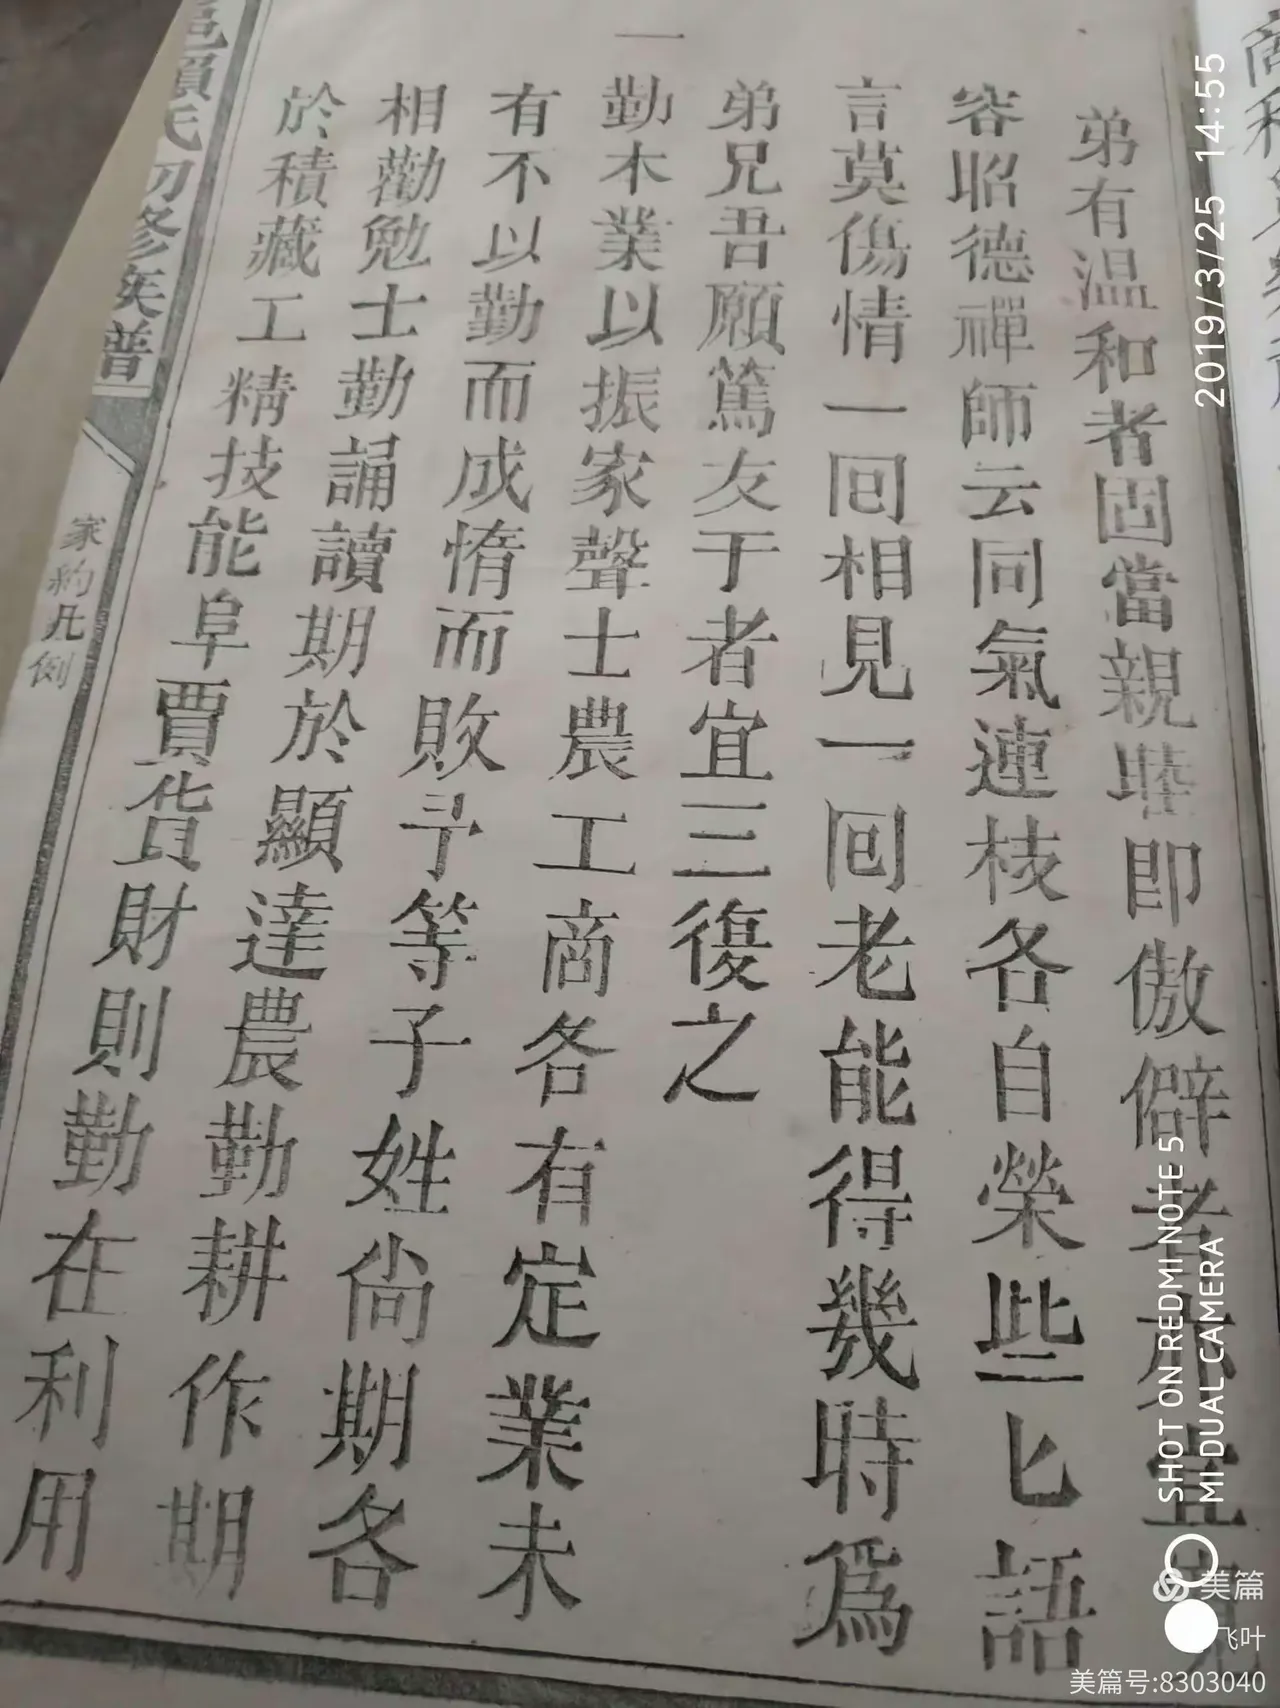 弟有温和者固當親睦即傲僻者亦宜
容昭德禪師云同氣連枝各自榮些些匕語
言莫傷情一回相見一回老能得幾時爲
弟兄吾願篤友于者宜三復之
一勤本業以振家聲士農工商各有定業未
有不以勤而成惰而敗予等子姓尚期各
相勸勉士勤誦讀期於顯達農勤耕作期
於積藏工精技能阜賈貨財則勤在利用
邑賴氏初修族譜
家約凡例
2019/3/25 14:55
SHOT ON REDMI NOTE 5
MI DUAL CAMERA
美篇
飞叶
美篇号:8303040